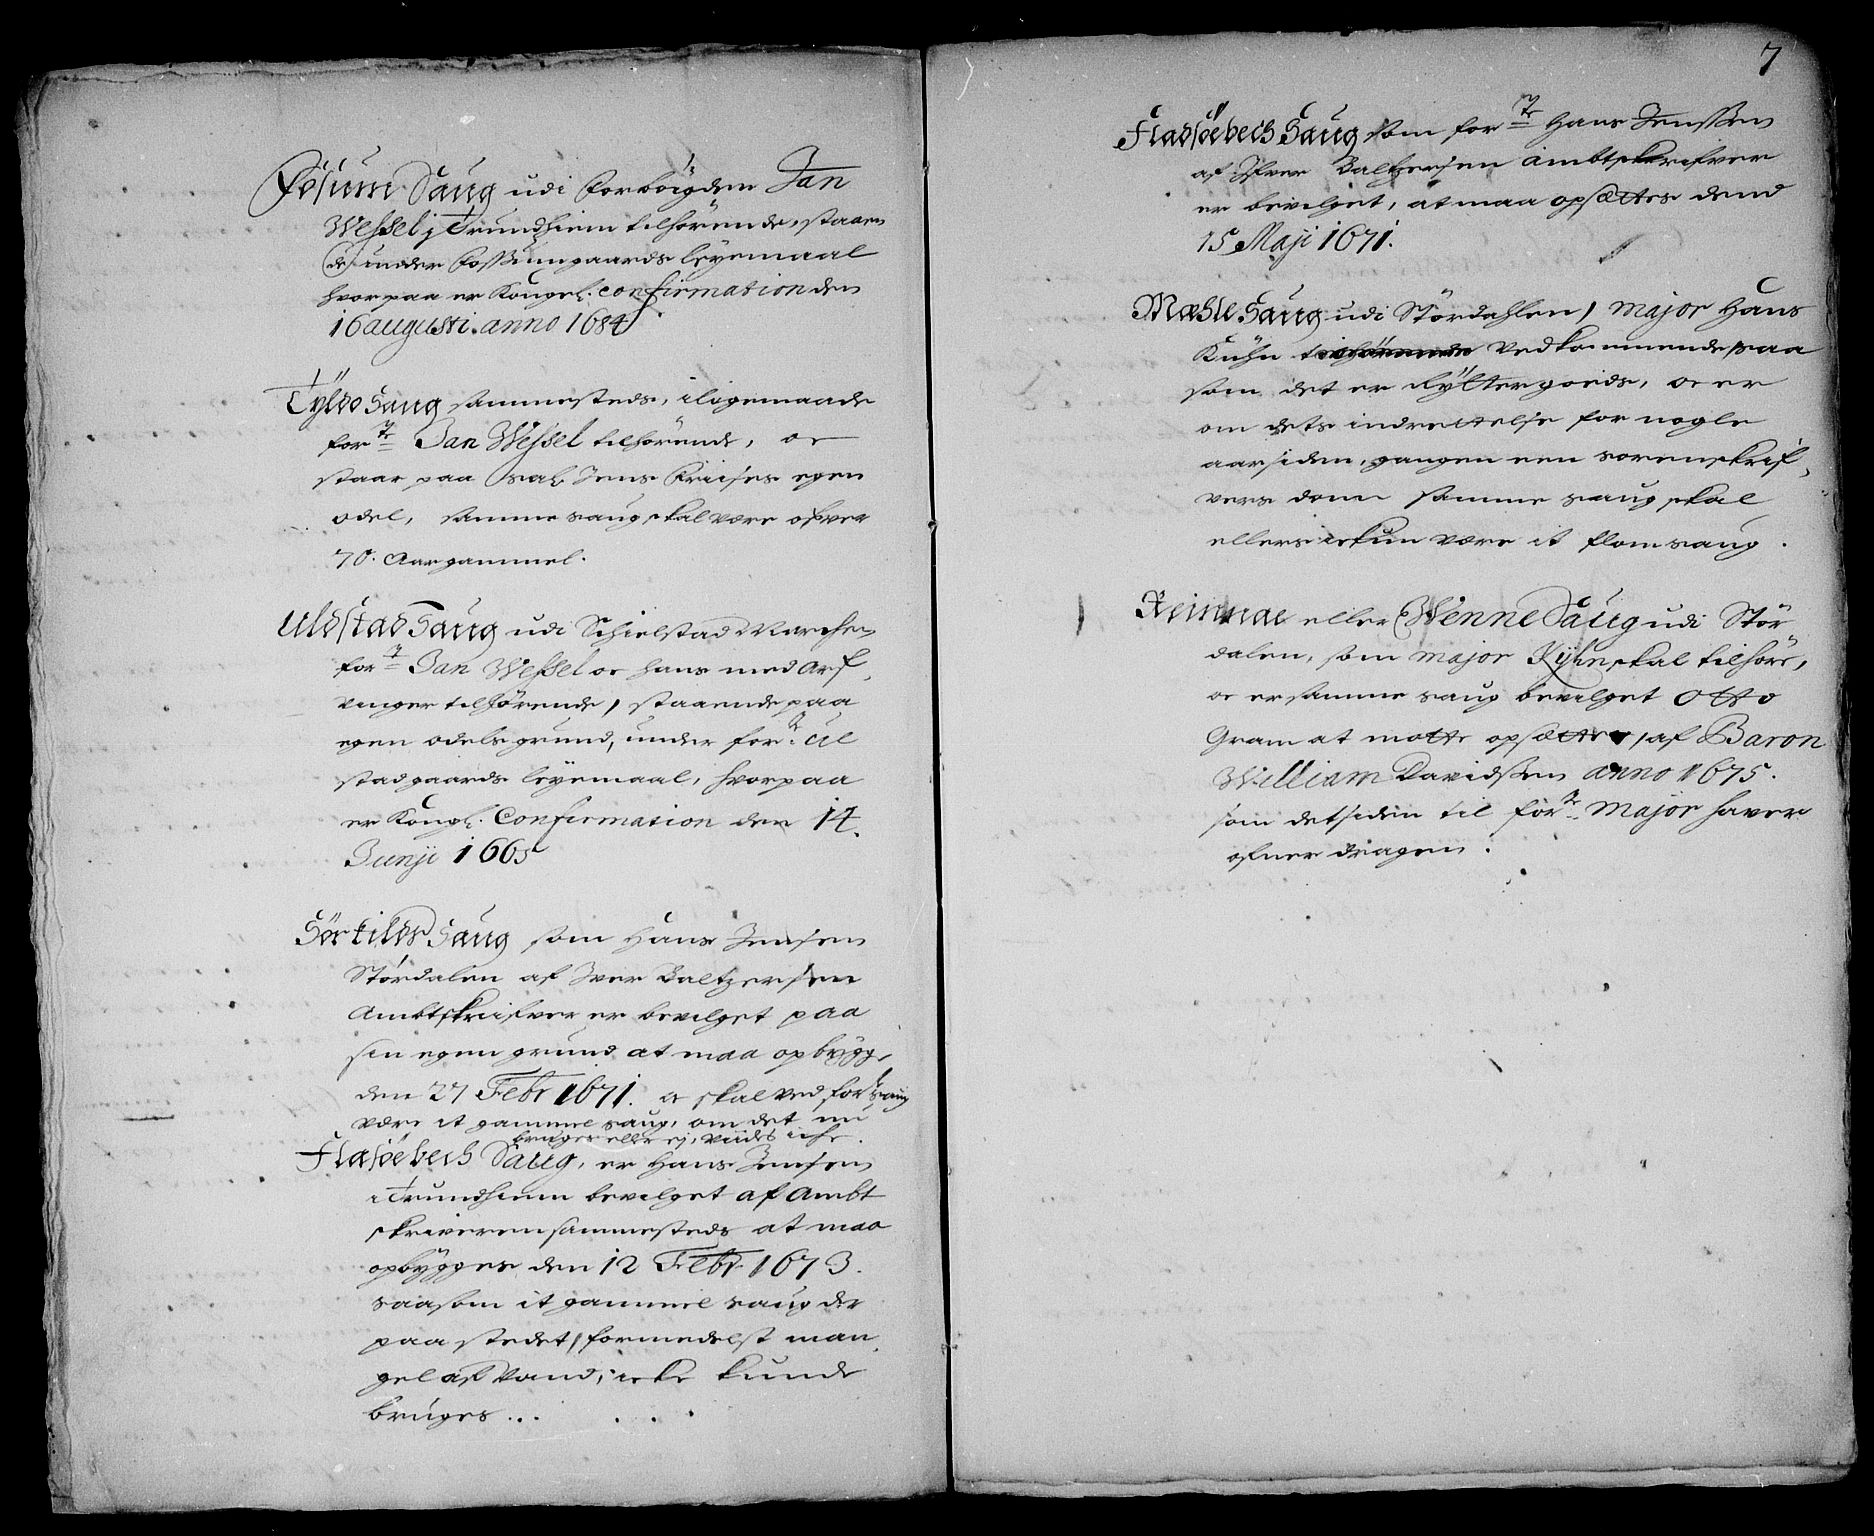 Fosum Saug udi Forbøigden Jan
Wessel j Trundhiem tilhørende, staaen
de under Fossumgaards leyemaal
hvorpaa er Kongel. confirmation den
16 augusti. anno 1684.
Tyldo Saug sammesteds, i ligemaade
forne Jan Wessel tilhørende, oc
staar paa Sal. Jens Kriises egen
odel, samme saug skal være ofver
70. Aar gammel.
Uldstad Saug udi Schielstad Marchen
forne Jan Wessel oc hans med Arf,
vinger tilhørende, staaende paa
egen odels grund, under forne Ul
stad gaards leyemaal, hvorpaa
er Kongl. Confirmation den 14.
Junji 1665
Sørkilds Saug som Hans Jensen
Størdalen af Iver Baltzersen
Ambtskrifver er bevilget paa
sin egen grund at maa opbygge,
den 27 Febr 1671. oc skal ved fors: saug
være it gammel saug, om det nu
bruges eller ej, viides iche.
Flasøebech Saug, er Hans Jensen
i Trundhiem bevilget af Ambt
skriveren sammesteds at maa
opbygges den 12 Febr 1673.
saasom it gammel saug der
paa stedet, formedelst man,
gel af Vand, icke kunde
bruges . . . . . .
7
Fladsøebech Saug som forne Hans Jenssen
af Ifver Baltzersen Ambtskrifver
er bevilget, at maa opsættes dend
15 Maji 1671.
Mæhle Saug udi Størdahlen, Major Hans
Kuhn tilhørende vedkommende saa
som det er Rytter goeds, oc er
om dets indrettelse for nogle
aar siden, gangen een sorenskrif,
vers dom samme saug skal
ellers ickun være it flom saug.
Reinnae eller Wenne Saug udi Stør
dalen, som major Kyhn skal tilhøre,
oc er samme saug bevilget Otto
Gram at motte opsætte, af Baron
William Davidssen anno 1675.
som det siden til forne Major haver
ofver dragen.